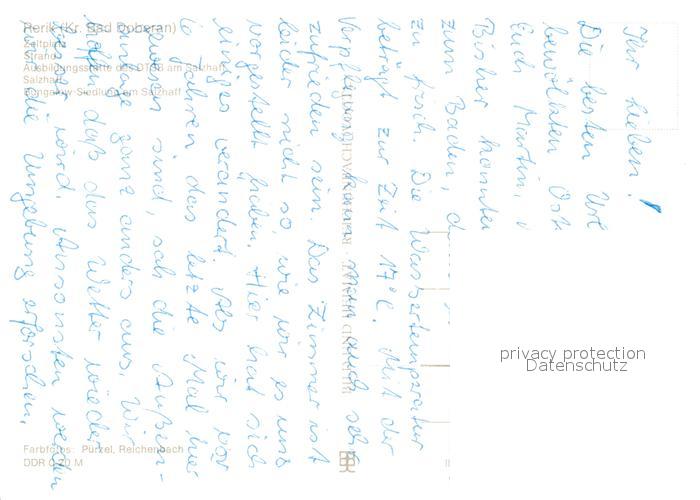 Rerik (Kr. Bad Doberan)
Zeltplatz
Strand
Ausbildungsstätte des DTSB am Salzhaff
Salzhaff
Bungalow-Siedlung am Salzhaff
Ihr Lieben!
Die besten Url
bewölkten Ost
Euch Martin,
Bisher konnten
zum Baden,
zu frisch. Die Wassertemperatur
beträgt zur Zeit 17°C. Mit der
Verpflegung kann man auch sehr
zufrieden sein. Das Zimmer ist
leider nicht so, wie wir es uns
vorgestellt haben. Hier hat sich
einiges verändert. Als wir vor
6 Jahren das letzte Mal hier
gewesen sind, sah die Außen-
anlage ganz anders aus. Wir
hoffen, daß das Wetter wieder
besser wird. Ansonsten werden
wir die Umgebung erforschen.
privacy protection
Datenschutz
Farbfotos: Pürzel, Reichenbach
DDR 0,20 M